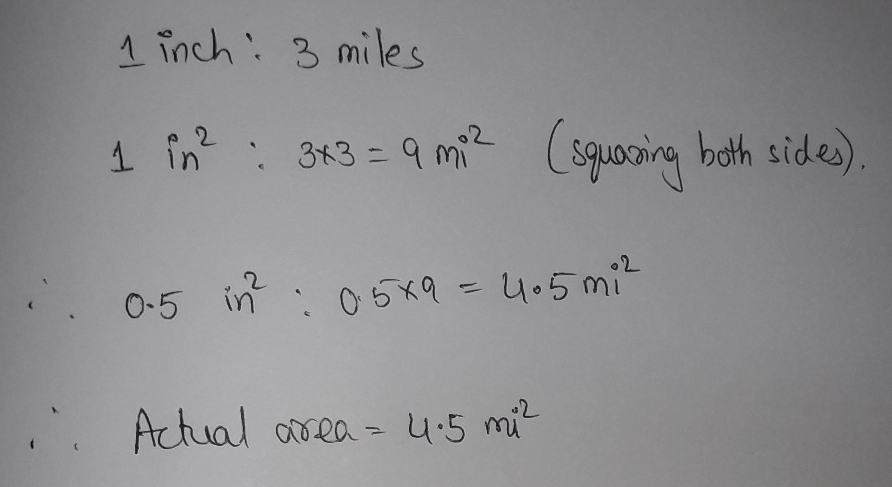 1 inch : 3 miles
1 in² : 3×3 = 9 mi² (squaring both sides).
∴ 0.5 in² : 0.5×9 = 4.5 mi²
∴ Actual area = 4.5 mi²